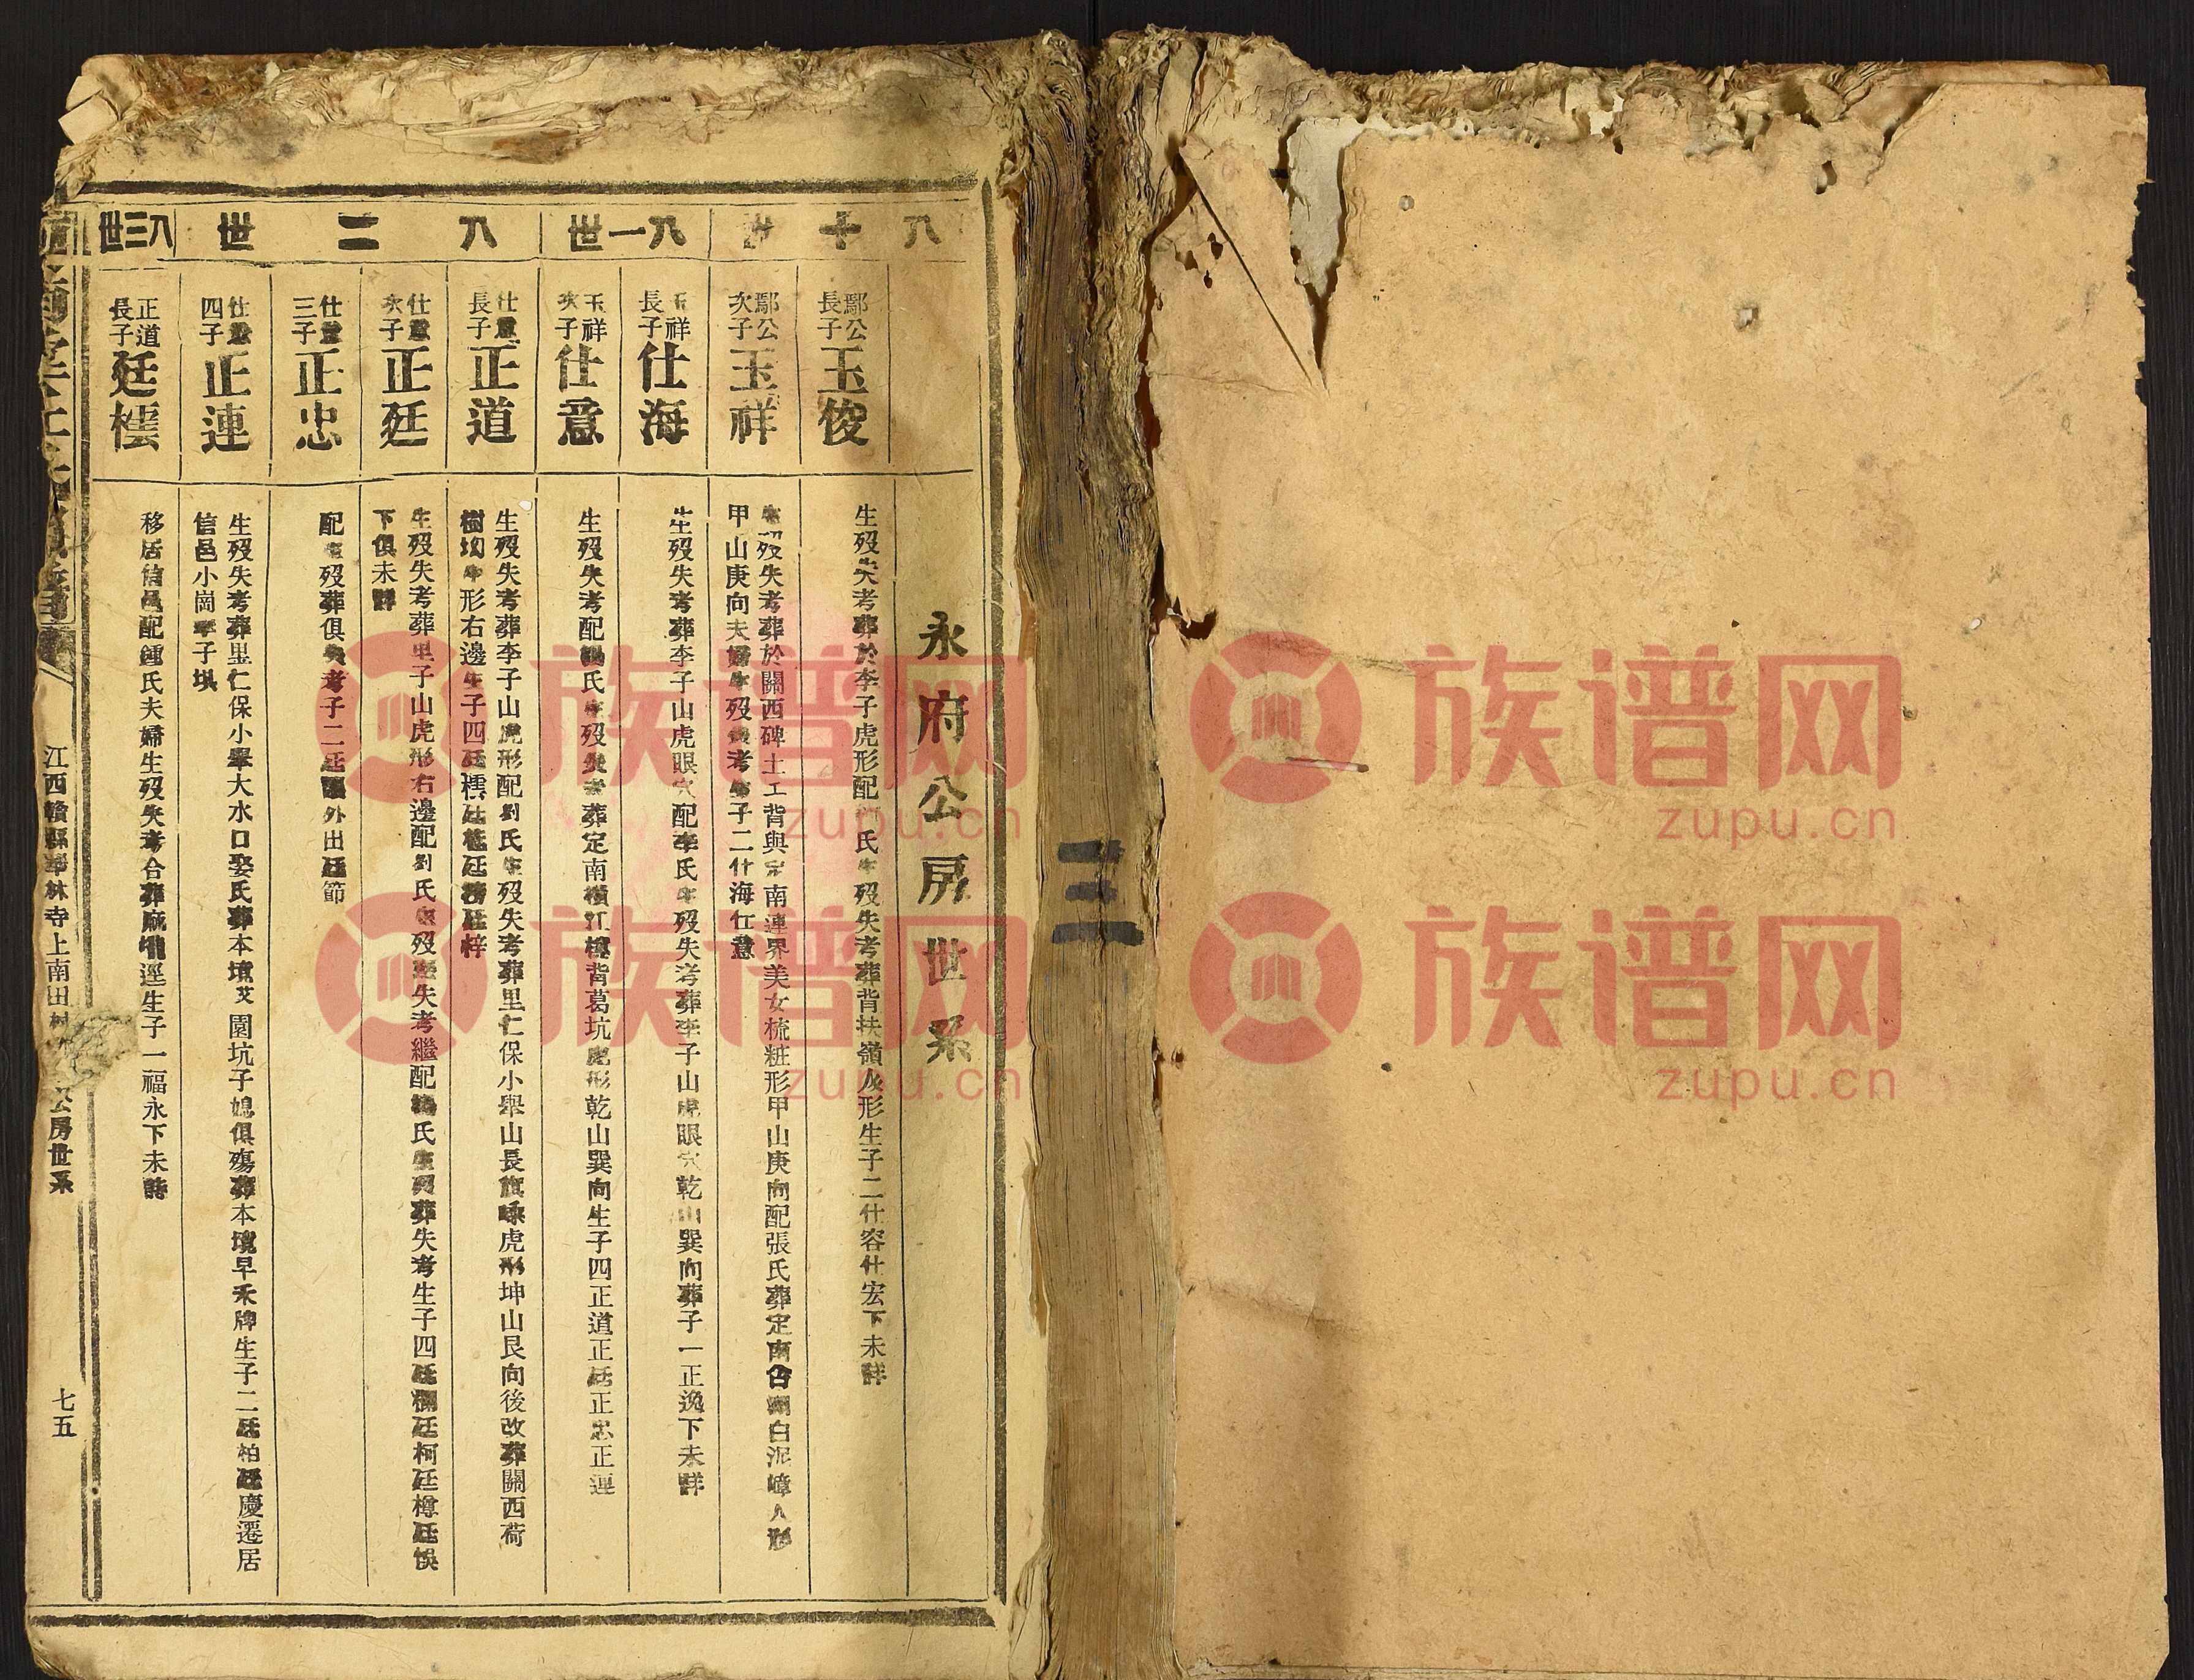 永府公房世系
八十世
鄢公長子玉俊
生歿失考葬於李子虎形配 氏生歿失考葬背扶嶺人形生子二仕容仕宏下未詳
鄢公次子玉祥
生歿失考葬於關西碑土工背與定南連界美女梳粧形甲山庚向配張氏葬定南 白泥嶂人形
甲山庚向夫婦生歿失考生子二仕海仕意
八一世
玉祥長子仕海
生歿失考葬李子山虎眼穴配李氏生歿失考葬李子山虎眼穴乾山巽向葬子一正逸下未詳
玉祥次子仕意
生歿失考配 氏生歿失考葬定南橫江 背葛坑虎形乾山巽向生子四正道正廷正忠正連
八二世
仕意長子正道
生歿失考葬李子山虎形配劉氏生歿失考葬里仁保小舉山長旗 虎形坤山艮向後改葬關西荷
樹坳牛形右邊生子四廷橒廷 廷 廷梓
仕意次子正廷
生歿失考葬里子山虎形右邊配劉氏 歿 失考繼配 氏生歿葬失考生子四廷欄廷柯廷樽廷
下俱未詳
仕意三子正忠
配 歿葬俱失考子二廷 外出廷節
仕意四子正連
生歿失考葬里仁保小舉大水口娶氏葬本境艾園坑子媳俱殤葬本境早禾牌生子二廷柏廷慶遷居
信邑小崗 子垻
八三世
正道長子廷橒
移居信邑配鍾氏夫婦生歿失考合葬麻 逕生子一福永下未詳
江西贛縣 林寺上南田村
公房世系
七五
三
族谱网
zupu.cn
族谱网
zupu.cn
族谱网
zupu.cn
族谱网
zupu.cn